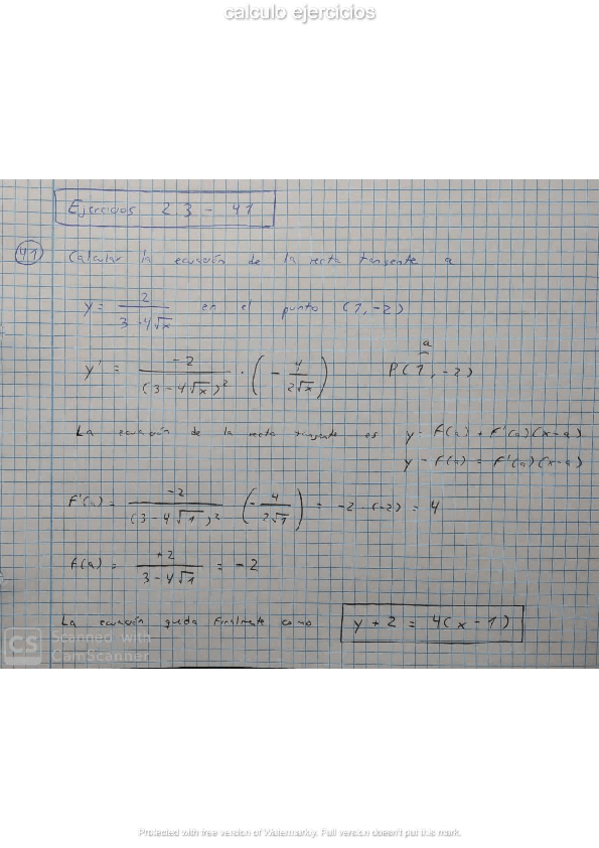 calculo ejercicios
Ejercicios 2.3 - 41
41 Calcular la ecuación de la recta tangente a
y = 2 / (3 - 4√x) en el punto (1, -2)
a
y' = -2 / (3 - 4√x)² · (- 4 / 2√x) P(1, -2)
La ecuación de la recta tangente es y = f(a) + f'(a)(x-a)
y - f(a) = f'(a)(x-a)
f'(a) = -2 / (3 - 4√1)² (- 4 / 2√1) = -2 · (-2) = 4
f(a) = +2 / (3 - 4√1) = -2
La ecuación queda finalmente como y + 2 = 4(x - 1)
CS Scanned with
CamScanner
Protected with free version of Watermarkly. Full version doesn't put this mark.